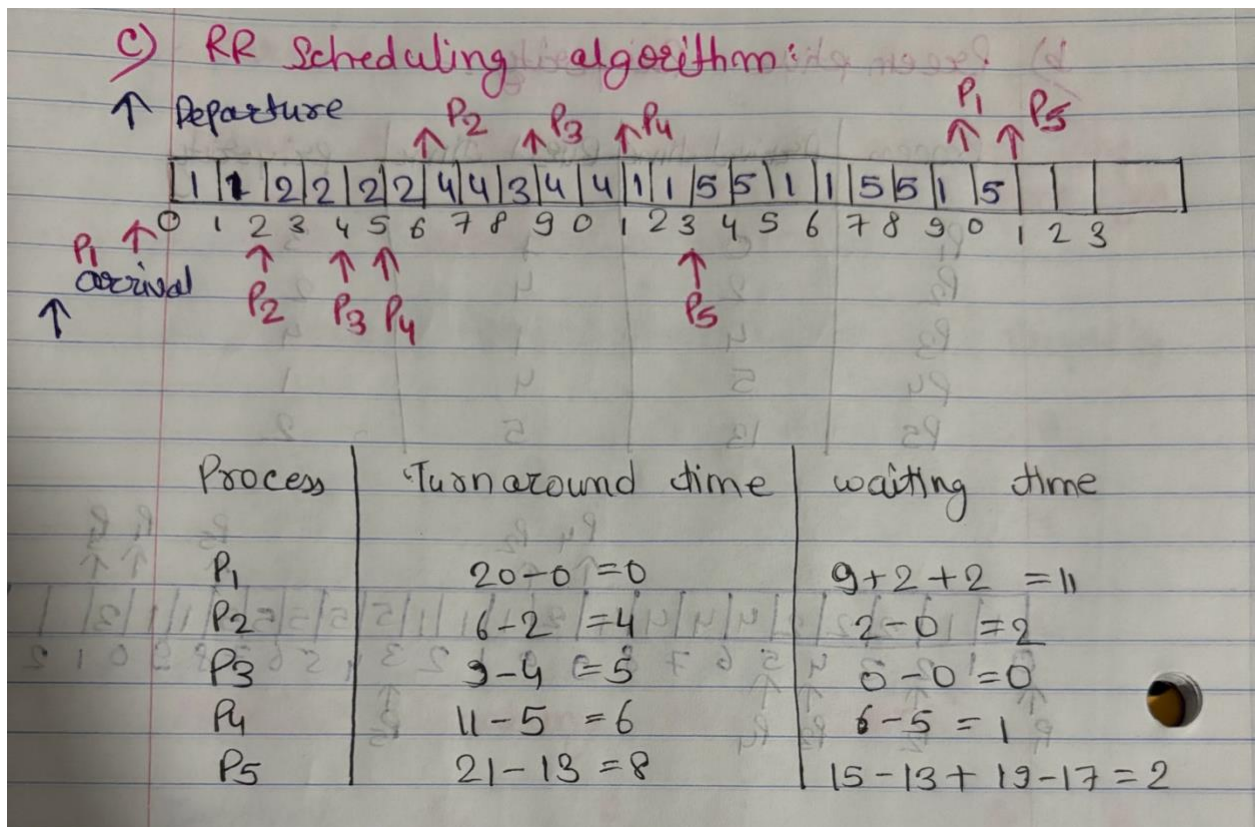 c) RR Scheduling algorithm:
↑ Departure P2 P3 P4 P1 P5
1 1 2 2 2 2 4 4 3 4 4 1 1 5 5 1 1 5 5 1 5
0 1 2 3 4 5 6 7 8 9 0 1 2 3 4 5 6 7 8 9 0 1 2 3
P1 ↑
arrival P2 P3 P4 P5
↑
Process Turnaround time waiting time
P1 20-0 =0 9+2+2 =11
P2 6-2 =4 2-0 =2
P3 9-4 =5 0-0 =0
P4 11-5 =6 6-5 = 1
P5 21-13 =8 15-13+19-17=2